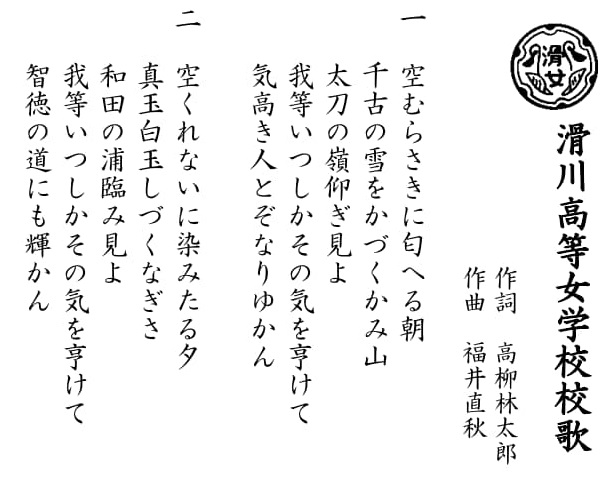 滑女
滑川高等女学校校歌
作詞 高柳林太郎
作曲 福井直秋
一
空むらさきに匂へる朝
千古の雪をかづくかみ山
太刀の嶺仰ぎ見よ
我等いつしかその気を亨けて
気高き人とぞなりゆかん
二
空くれないに染みたる夕
真玉白玉しづくなぎさ
和田の浦臨み見よ
我等いつしかその気を亨けて
智徳の道にも輝かん